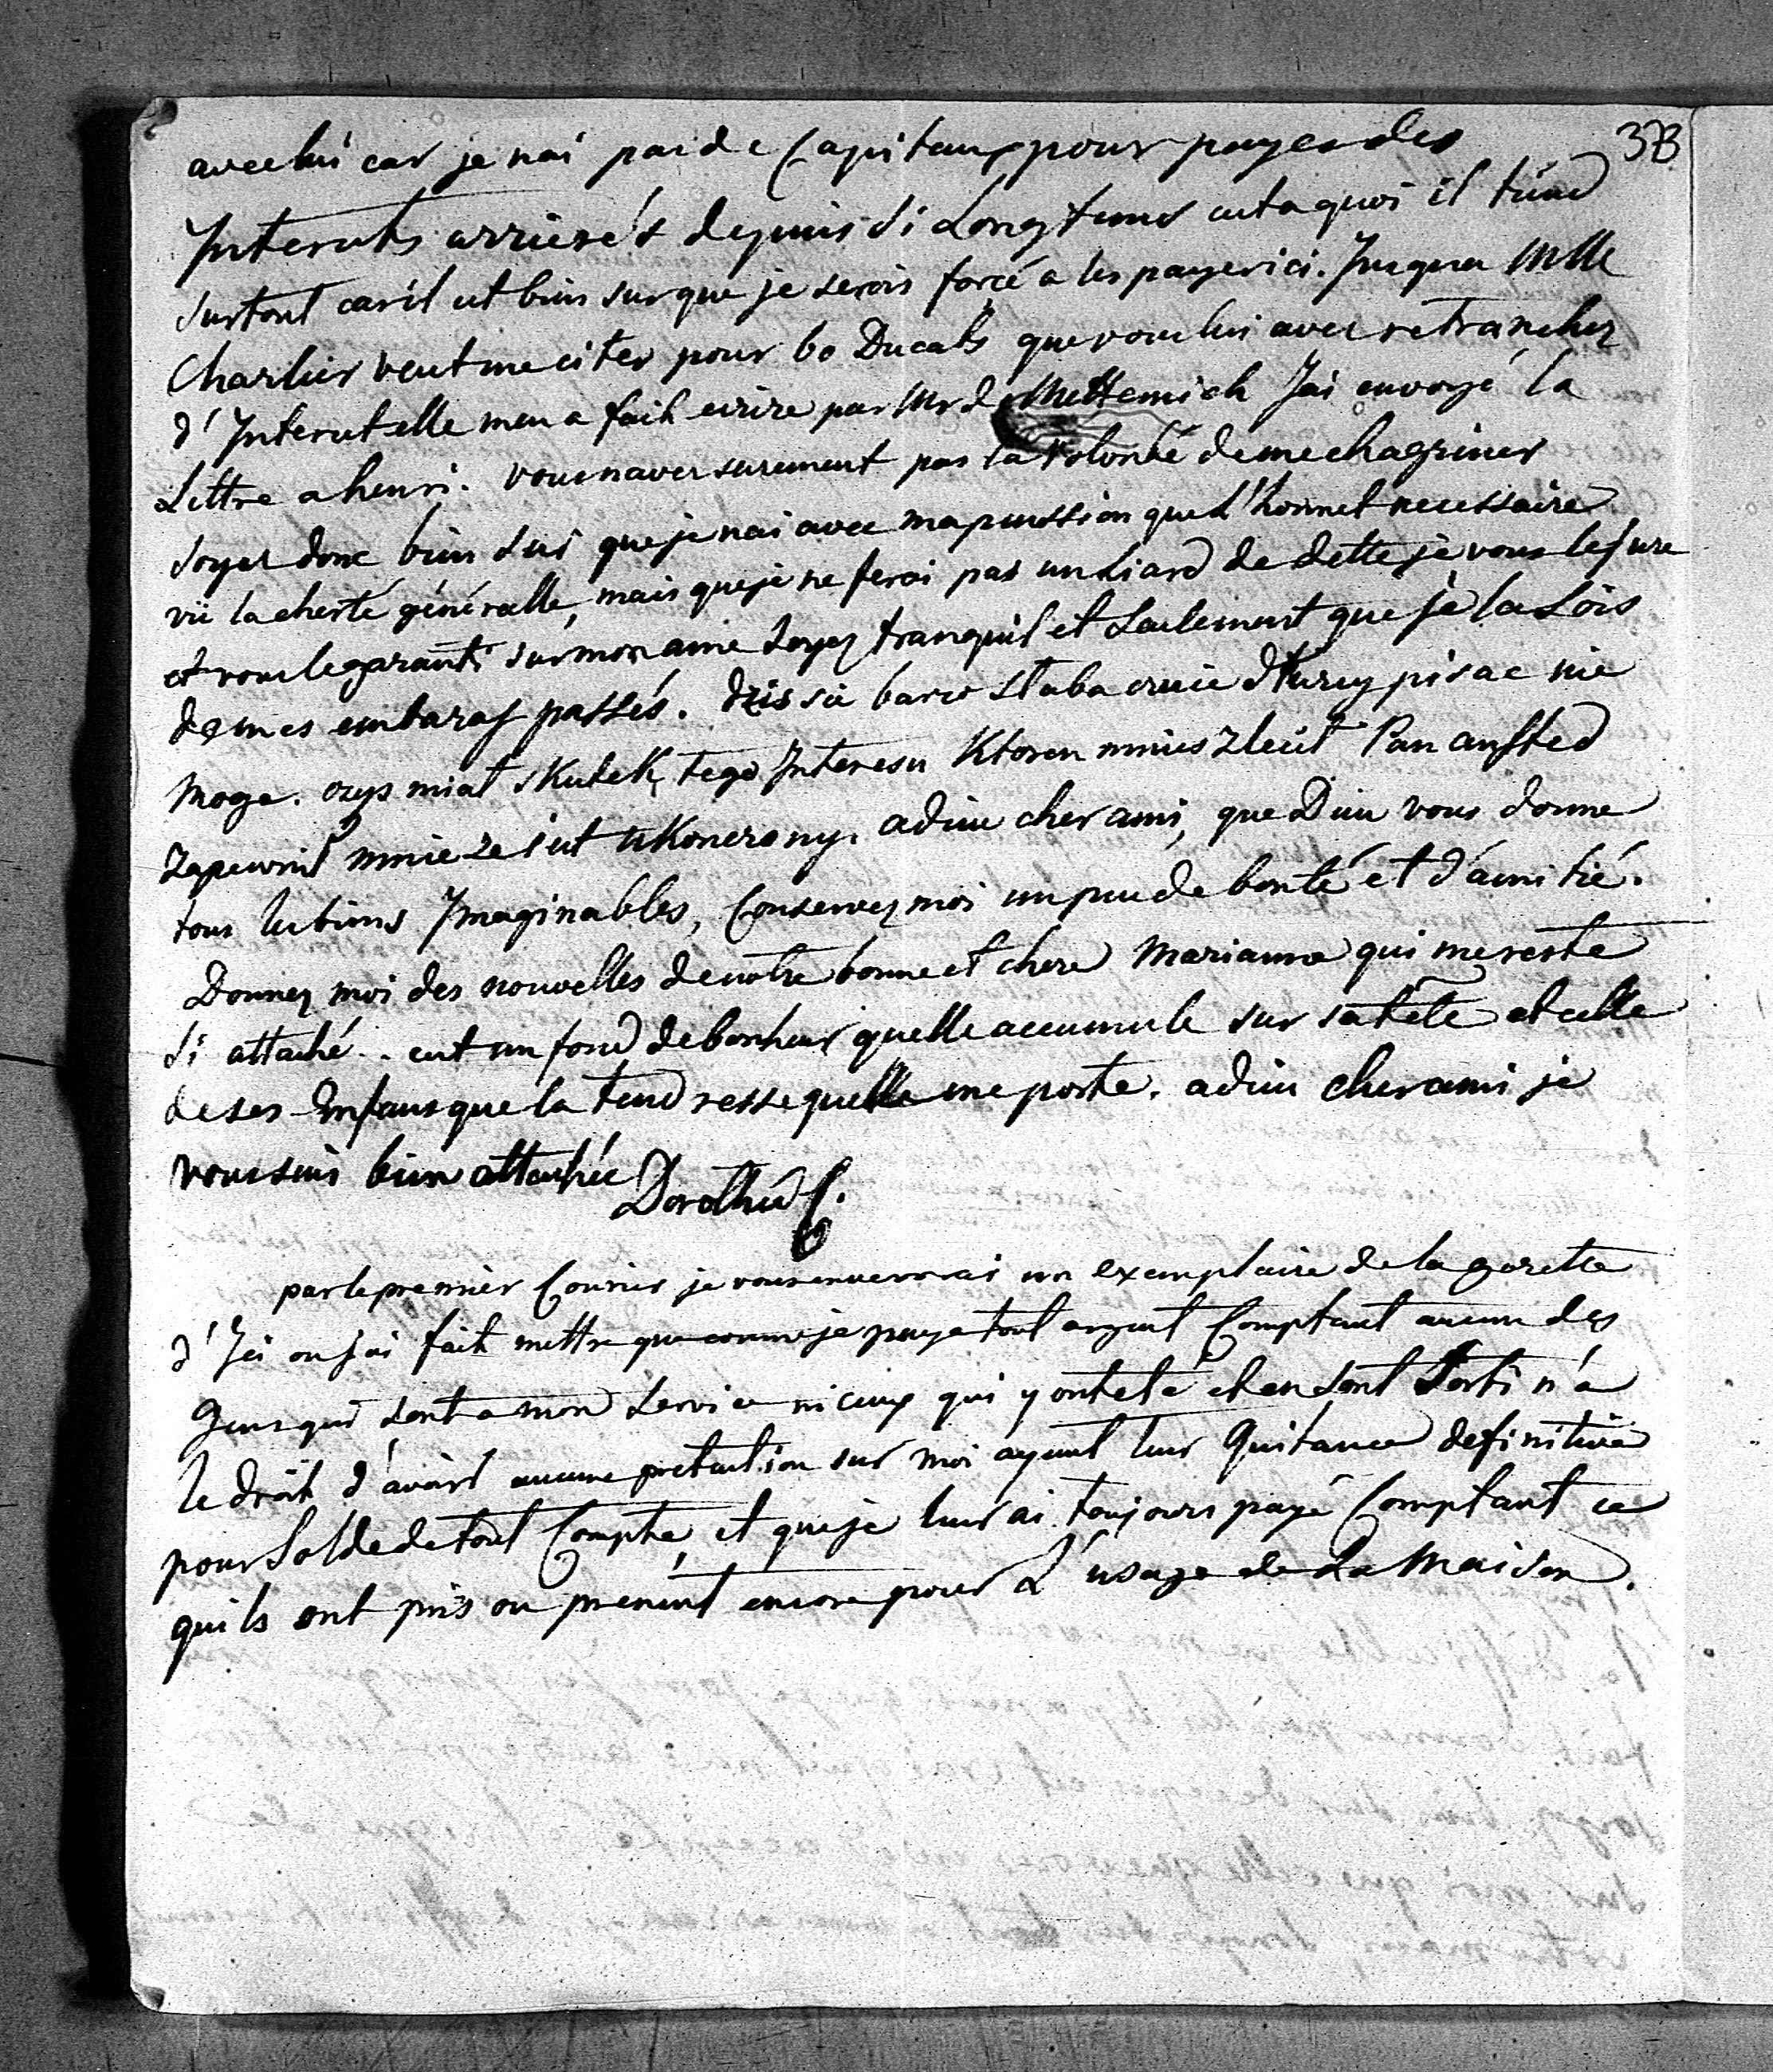 373
avec lui car je nai pas de Capitaux pour payer des
Interets arrierés depuis si Longtems cest a quoi il tiend
surtout car il est bien sur que je serois forcé a les payer ici. Jusqua Mlle
Charlier veut me citer pour 60 Ducats que vous lui avez retranchez
d'Interet elle men a fait ecrire par Mr d Metternich Jai envoyé la
Lettre a henri. vous navez surement pas la volonté de me chagriner
soyez donc bien sur que je nai avec ma penssion que L'honnet necessaire
vü la cherté généralle, mais que je ne ferai pas un Liard de dette je vous le jure
et vous le garanti sur mon ame soyez tranquil et seulement que je la sois
de mes embaras passés. dzis sie barzo staba czuie dtuzey pisac nie
moge. czys miat skutek tego Interesu ktoren mnies zleciet Pan ansted
zapewnit mnie ze iest ukonczony. adieu cher ami, que Dieu vous donne
tous les biens Imaginables, Conservez moi un peu de bonté et d'amitié.
Donnez moi des nouvelles de notre bonne et chere Marianne qui me reste
si attaché.. cest un fond de bonheur quelle accumule sur sa tête et celle
de ses Enfans que la tendresse quelle me porte. adieu cher ami je
vous suis bien attachée
Dorothée
par le premier Courier je vous enverrai un exemplaire de la gazette
d'Ici ou jai fait mettre que comme je paye tout argent Comptant aucun des
Gens qui sont a mon service ni ceux qui y ont eté et en sont Sorti n'a
le droit d'avoir aucune pretention sur moi ayant leur Quitance definitive
pour Solde de tout Compte, et que je leur ai toujours payé Comptant ce
qui ls ont pris ou prenent encore pour L'usage de La Maison.